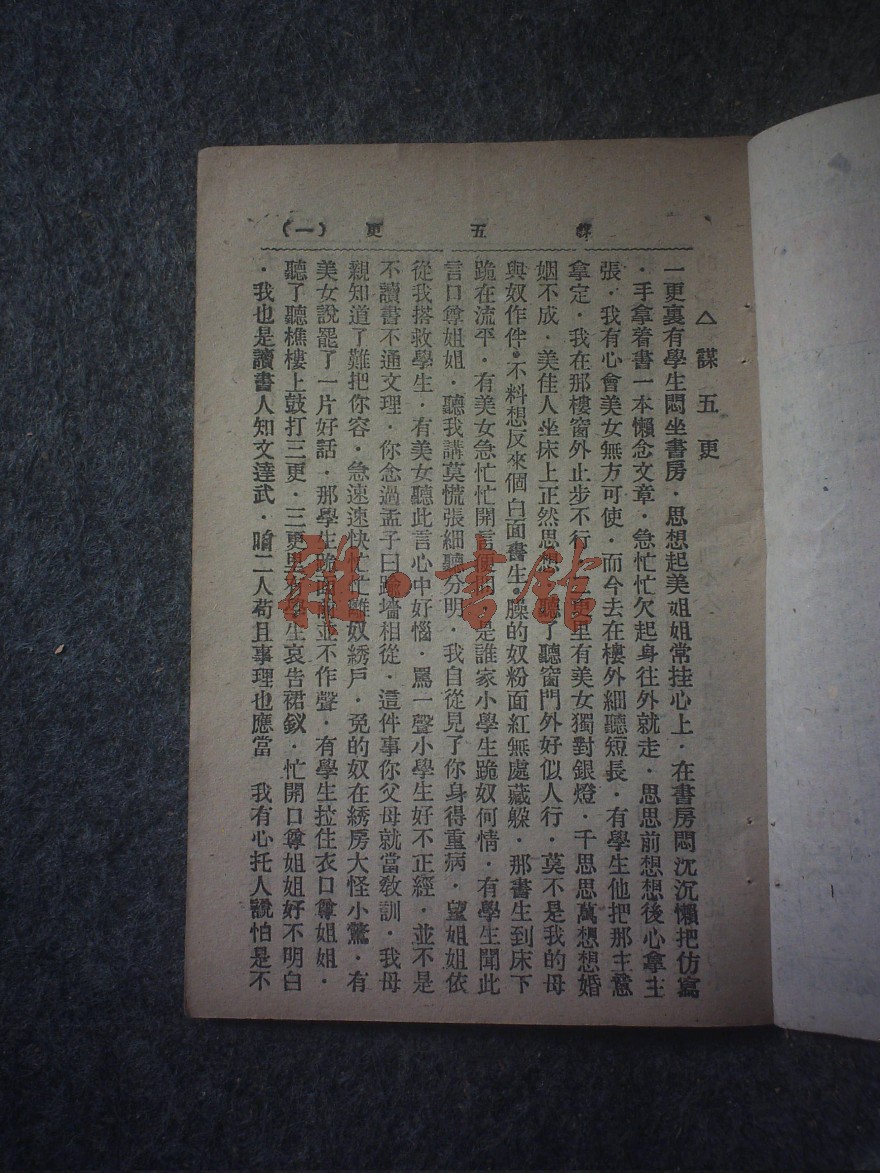 謀五更（一）
△謀五更
一更裏有學生悶坐書房．思想起美姐姐常挂心上．在書房悶沈沉懶把仿寫
．手拿着書一本懶念文章．急忙忙欠起身往外就走．思思前想想後心拿主
張．我有心會美女無方可使．而今去在樓外細聽短長．有學生他把那主意
拿定．我在那樓窗外止步不行．二更里有美女獨對銀燈．千思思萬想想婚
姻不成．美佳人坐床上正然思想．聽了聽窗門外好似人行．莫不是我的母
與奴作伴．不料想反來個白面書生．臊的奴粉面紅無處藏躲．那書生到床下
跪在流平．有美女急忙忙開言便問．是誰家小學生跪奴何情．有學生聞此
言口尊姐姐．聽我講莫慌張細聽分明．我自從見了你身得重病．望姐姐依
從我搭救學生．有美女聽此言心中好惱．罵一聲小學生好不正經．並不是
不讀書不通文理．你念過孟子曰踰墻相從．這件事你父母就當教訓．我母
親知道了難把你容．急速速快忙忙離奴綉戶．免的奴在綉房大怪小驚．有
美女說罷了一片好話．那學生跪面前並不作聲．有學生拉住衣口尊姐姐．
聽了聽樵樓上鼓打三更．三更里有學生哀告裙釵．忙開口尊姐姐好不明白
．我也是讀書人知文達武．咱二人苟且事理也應當　我有心托人說怕是不
雜・書館